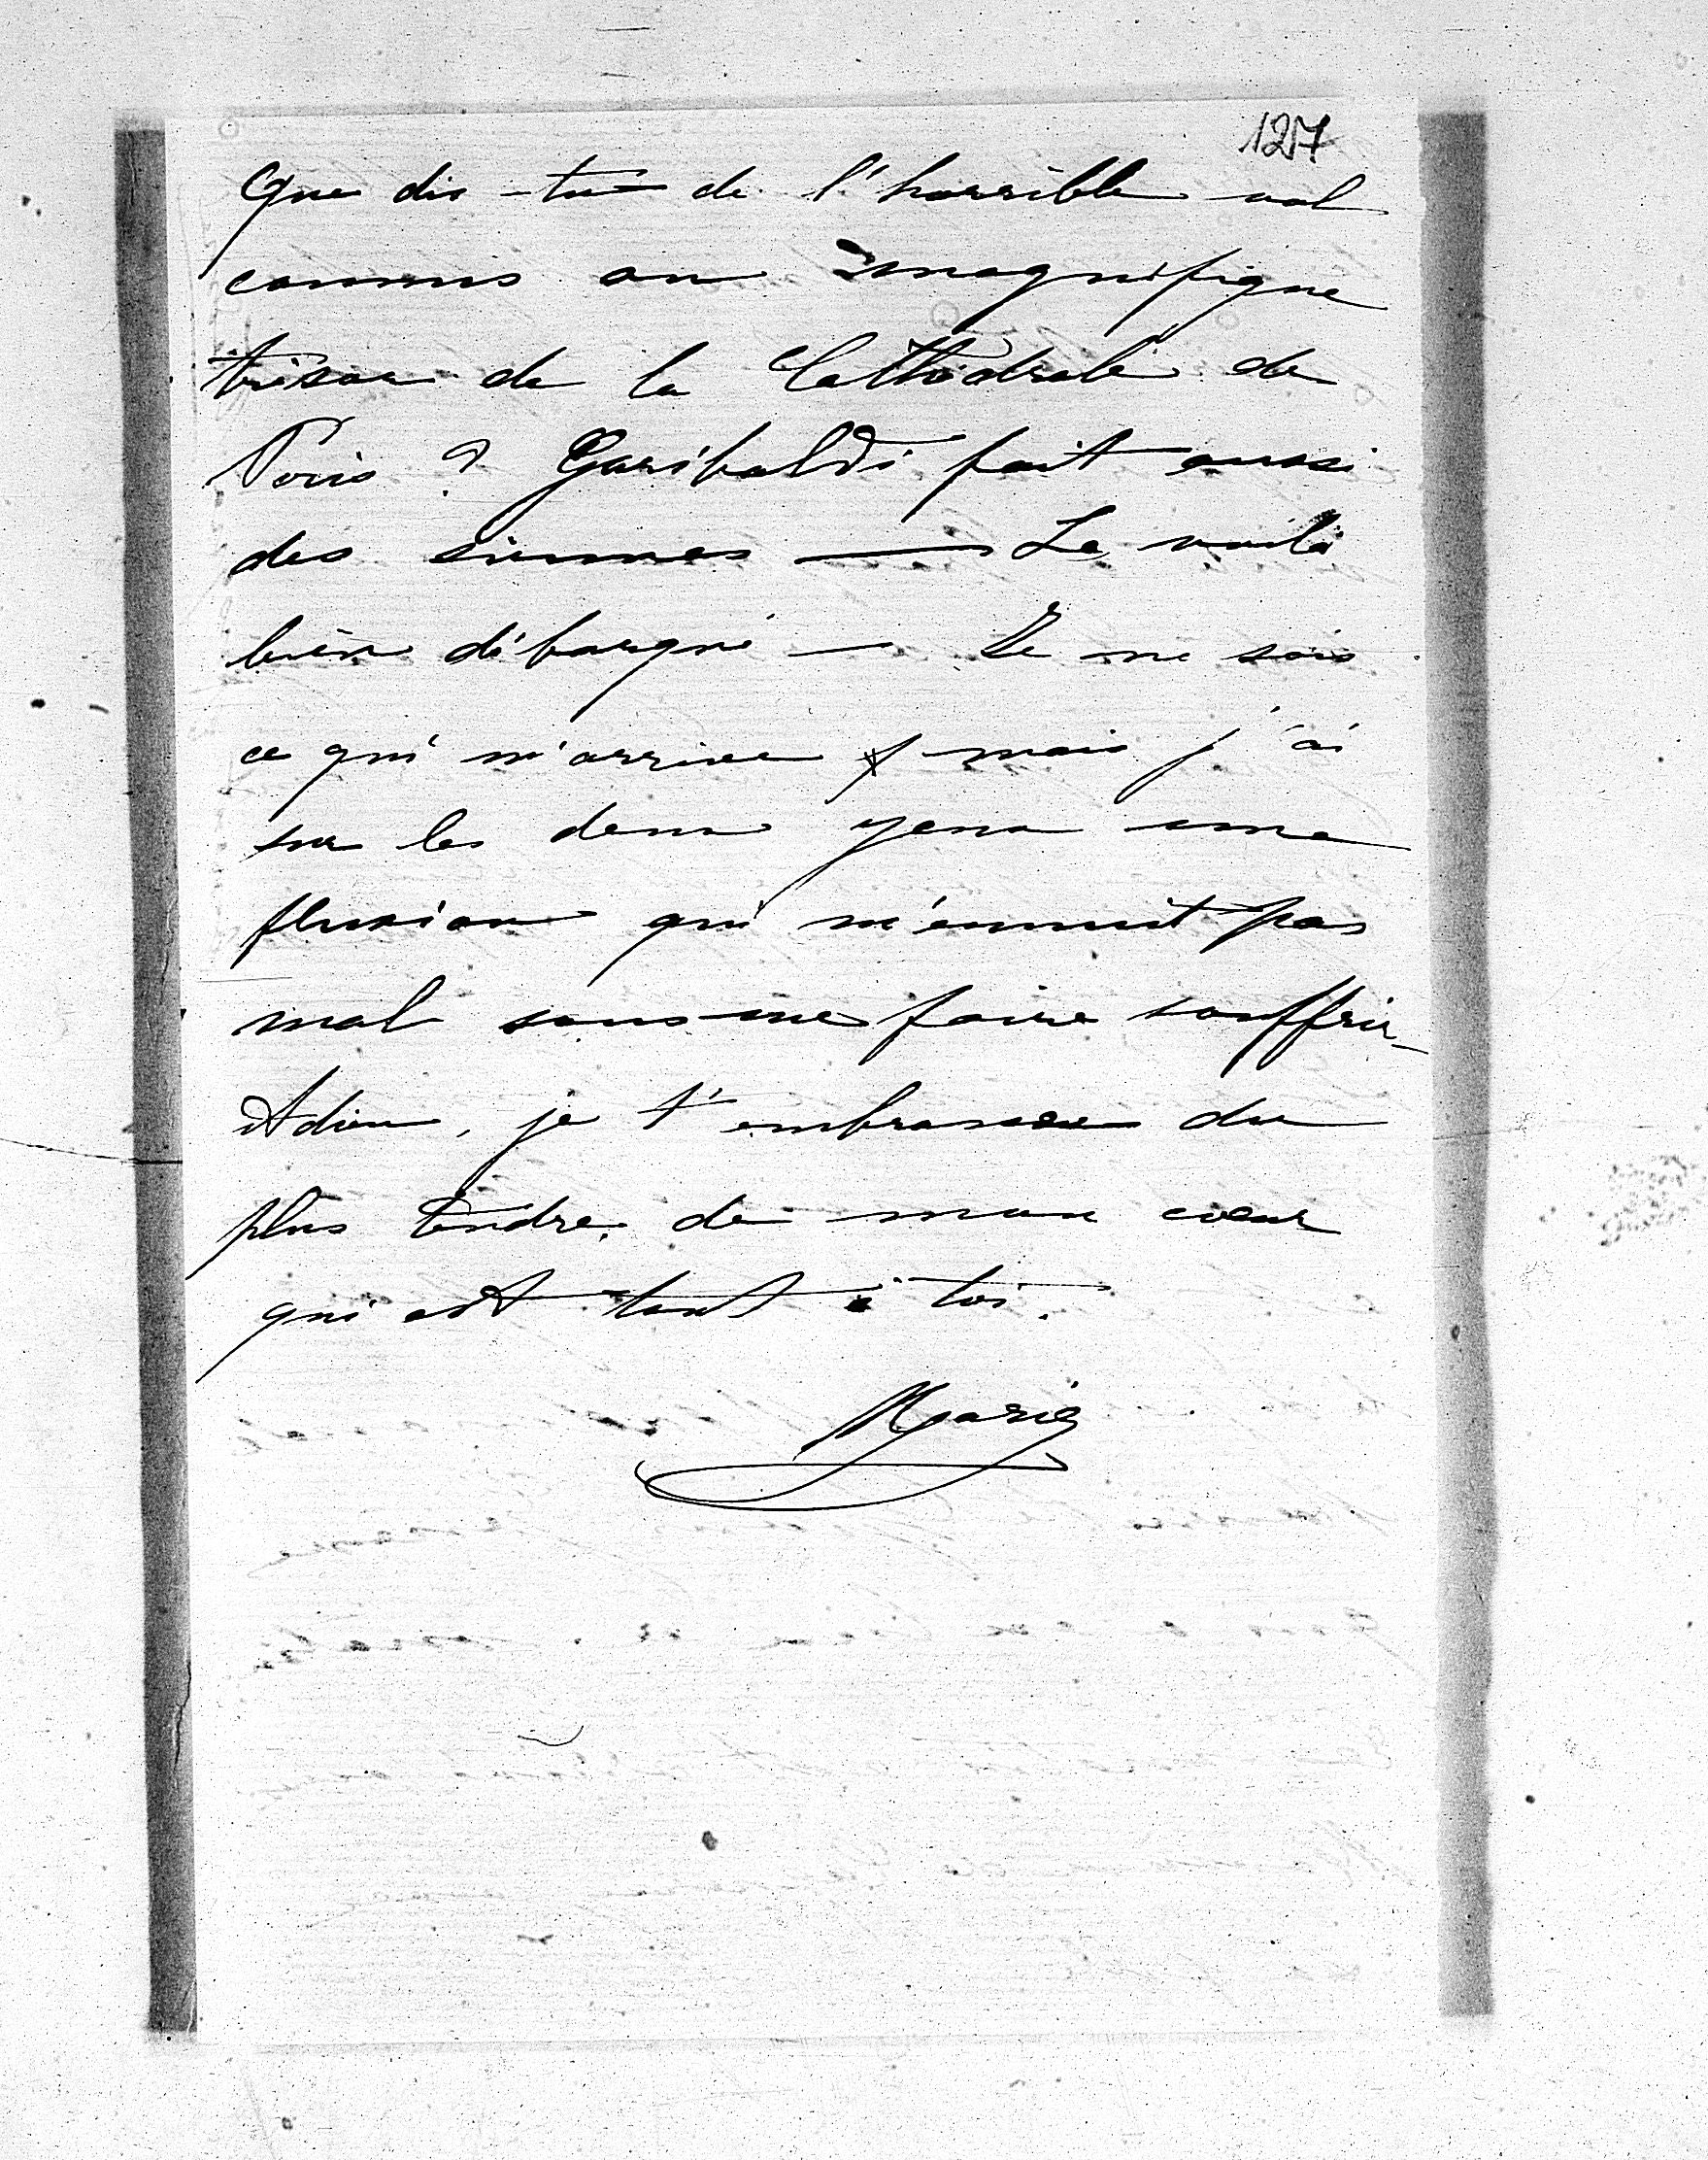 127
Que dis-tu de l'horrible vol
commis au magnifique
trésor de la Cathédrale de
Paris ? Garibaldi fait aussi
des siennes — Le voilà
bien débarqué — Je ne sais
ce qui m'arrive, mais j'ai
sur les deux yeux une
fluxion qui m'ennuit pas
mal sans me faire souffrir_
Adieu, je t'embrasse du
plus tendre de mon cœur
qui est tout à toi.
Marie